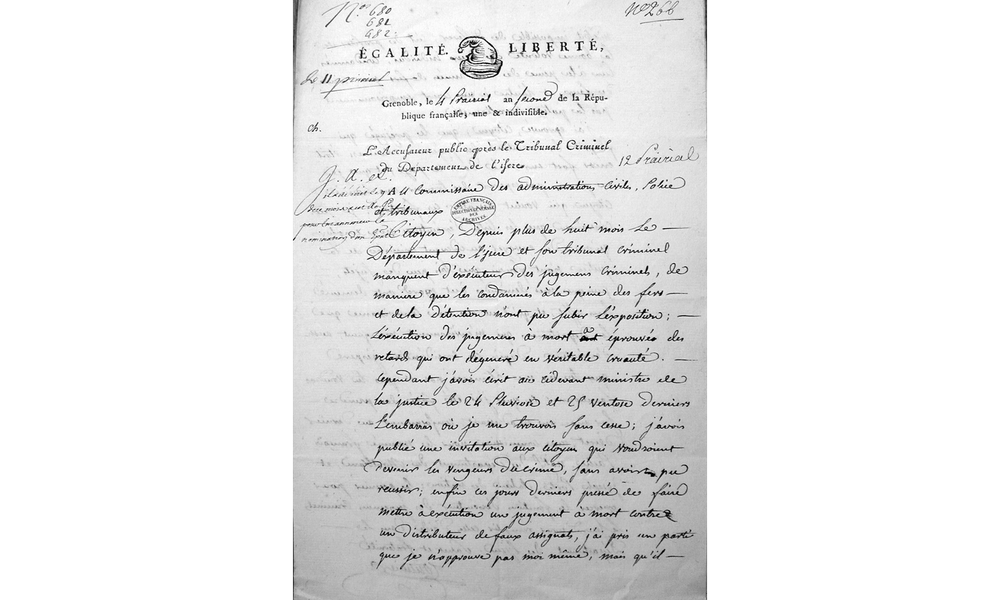 Nos 680
681
682
No 266
ÉGALITÉ. LIBERTÉ,
de 11 prairial
Grenoble, le 4 Prairial an second de la Répu-
blique française, une & indivisible.
ch.
L'Accusateur public près le Tribunal Criminel
du Département de l'isere
12 Prairial
Au Commissaire des administrations Civiles, Police
et tribunaux
EMPIRE FRANÇAIS
DIRECTION GÉNÉRALE
DES
ARCHIVES
pour lui annoncer la
nomination d'un
Citoyen, Depuis plus de huit mois Le
Département de l'isere et son tribunal criminel
manquent d'exécuteur des jugemens criminels, de
maniere que les condamnés à la peine des fers
et de la détention n'ont pu subir l'exposition;
L'exécution des jugemens à mort a éprouvée des
retards qui ont dégeneré en véritable cruauté.
Cependant j'avois écrit au cidevant ministre de
la justice le 24 Pluviose et 25 ventose derniers
L'embarras où je me trouvois sans cesse; j'avois
publié une invitation aux citoyen qui voudroient
devenir les vengeurs du crime, sans avoir pu
reussir; enfin ces jours derniers pressé de faire
mettre à exécution un jugement à mort contre
un distributeur de faux assignats, j'ai pris un parti
que je n'approuve pas moi même, mais qu'il